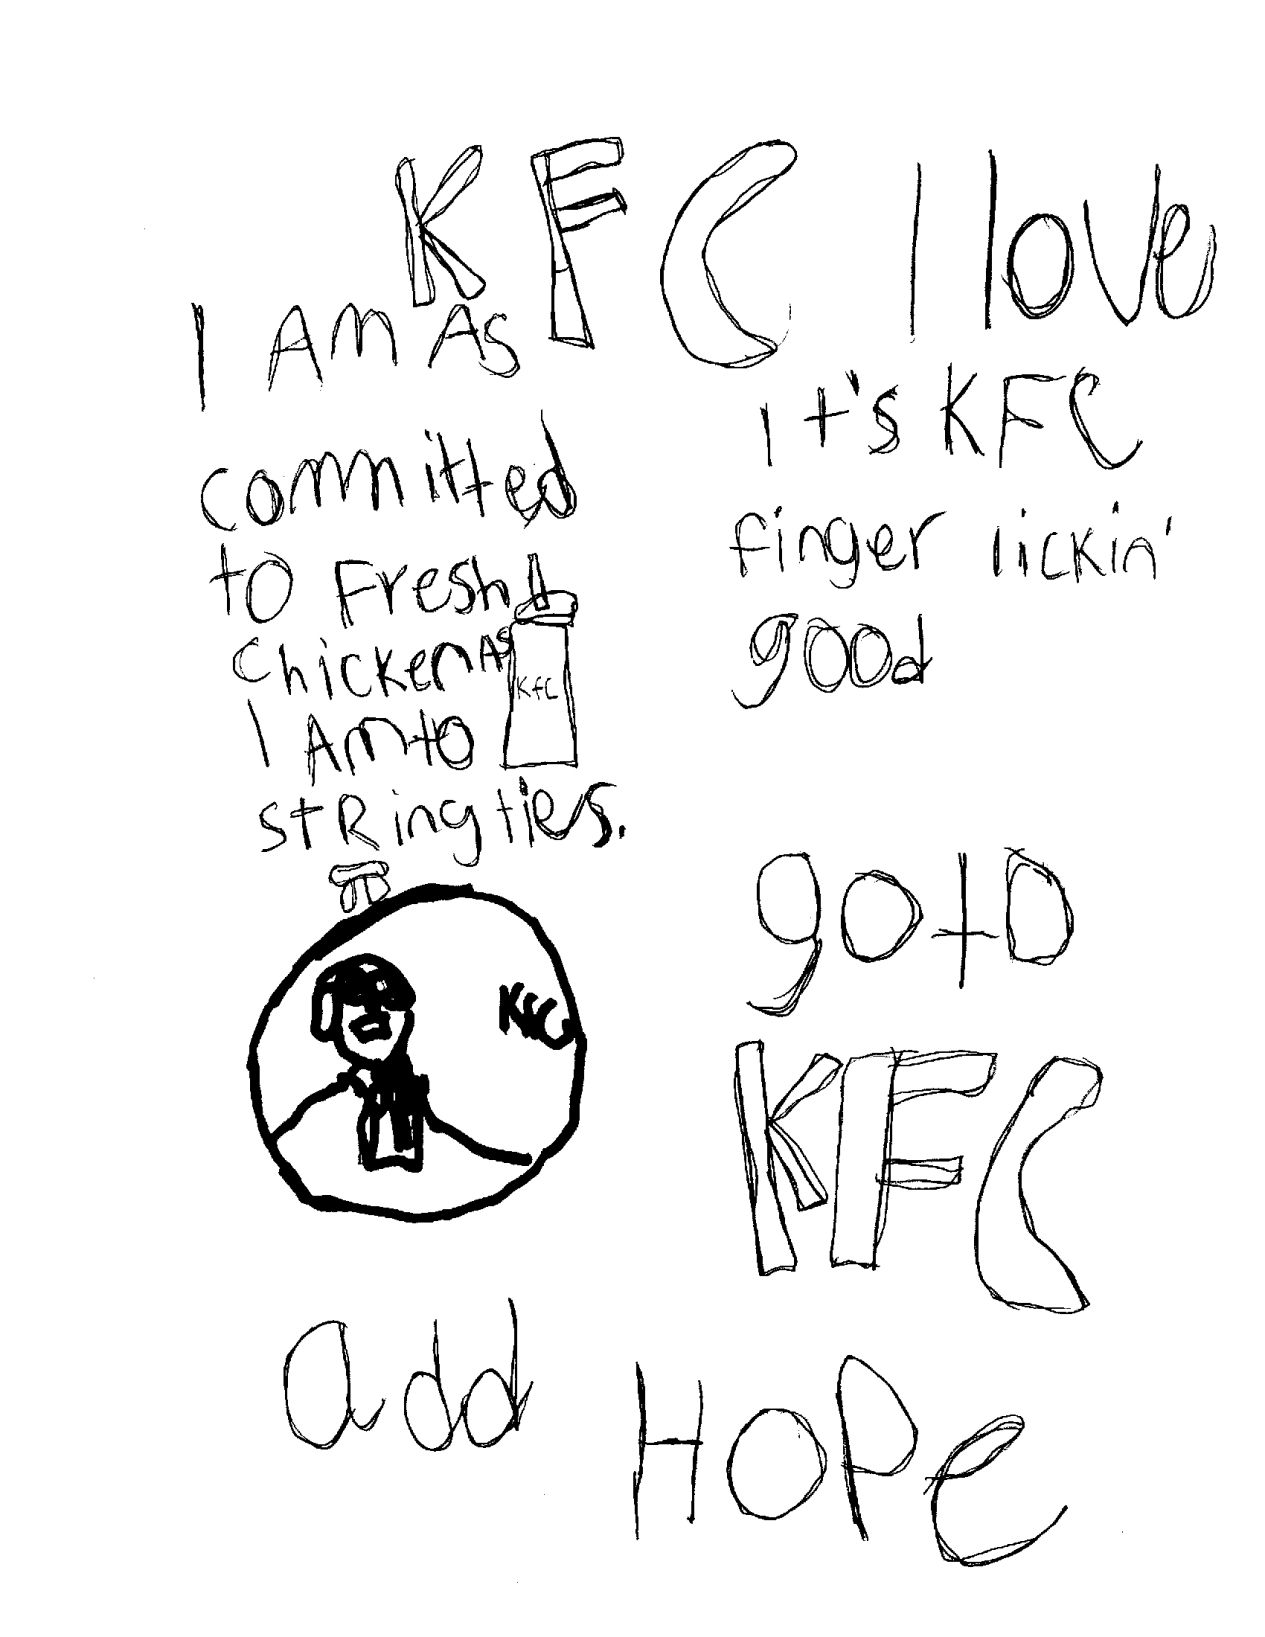 KFC I love
I AM AS
committed
to Fresh
chicken As
I AM to
stRing ties.
KfC
it's KFC
finger lickin'
good
KFC
gotD
KFC
add HoPe